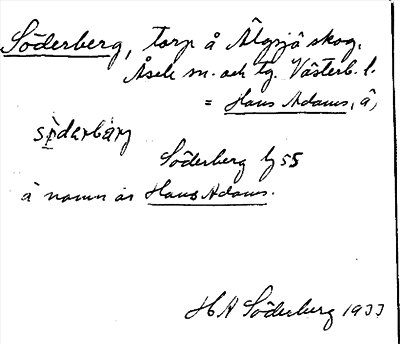 Söderberg, torp å Älgsjö skog.
Åsele sn. och tg. Västerb. l.
= Hans Adams, å,
södərbärj
Söderberg by 55
å namn är Hans Adams.
H A Söderberg 1933